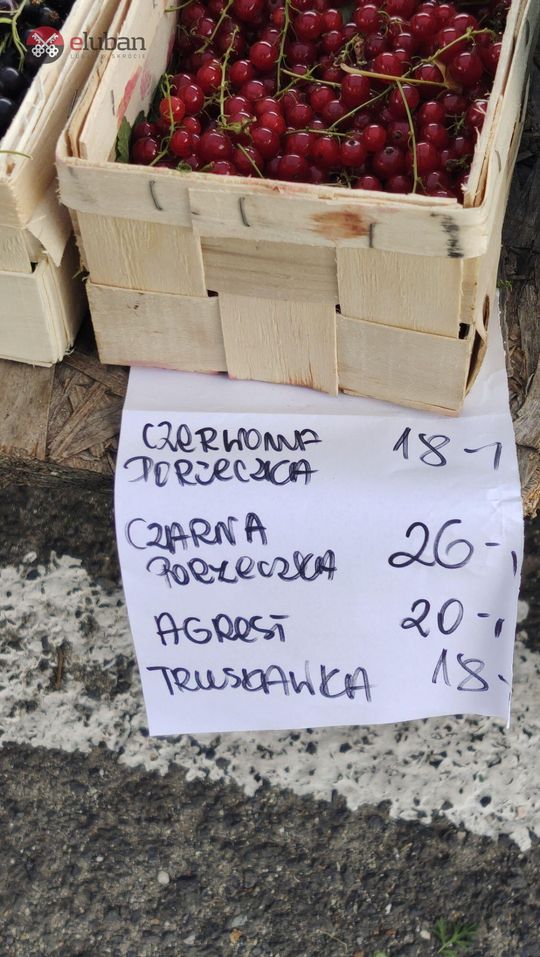 eluban
LUBAŃ W SKRÓCIE
CZERWONA 18-,
PORZECZKA
CZARNA
PORZECZKA 26-,
AGREST 20-,
TRUSKAWKA 18-